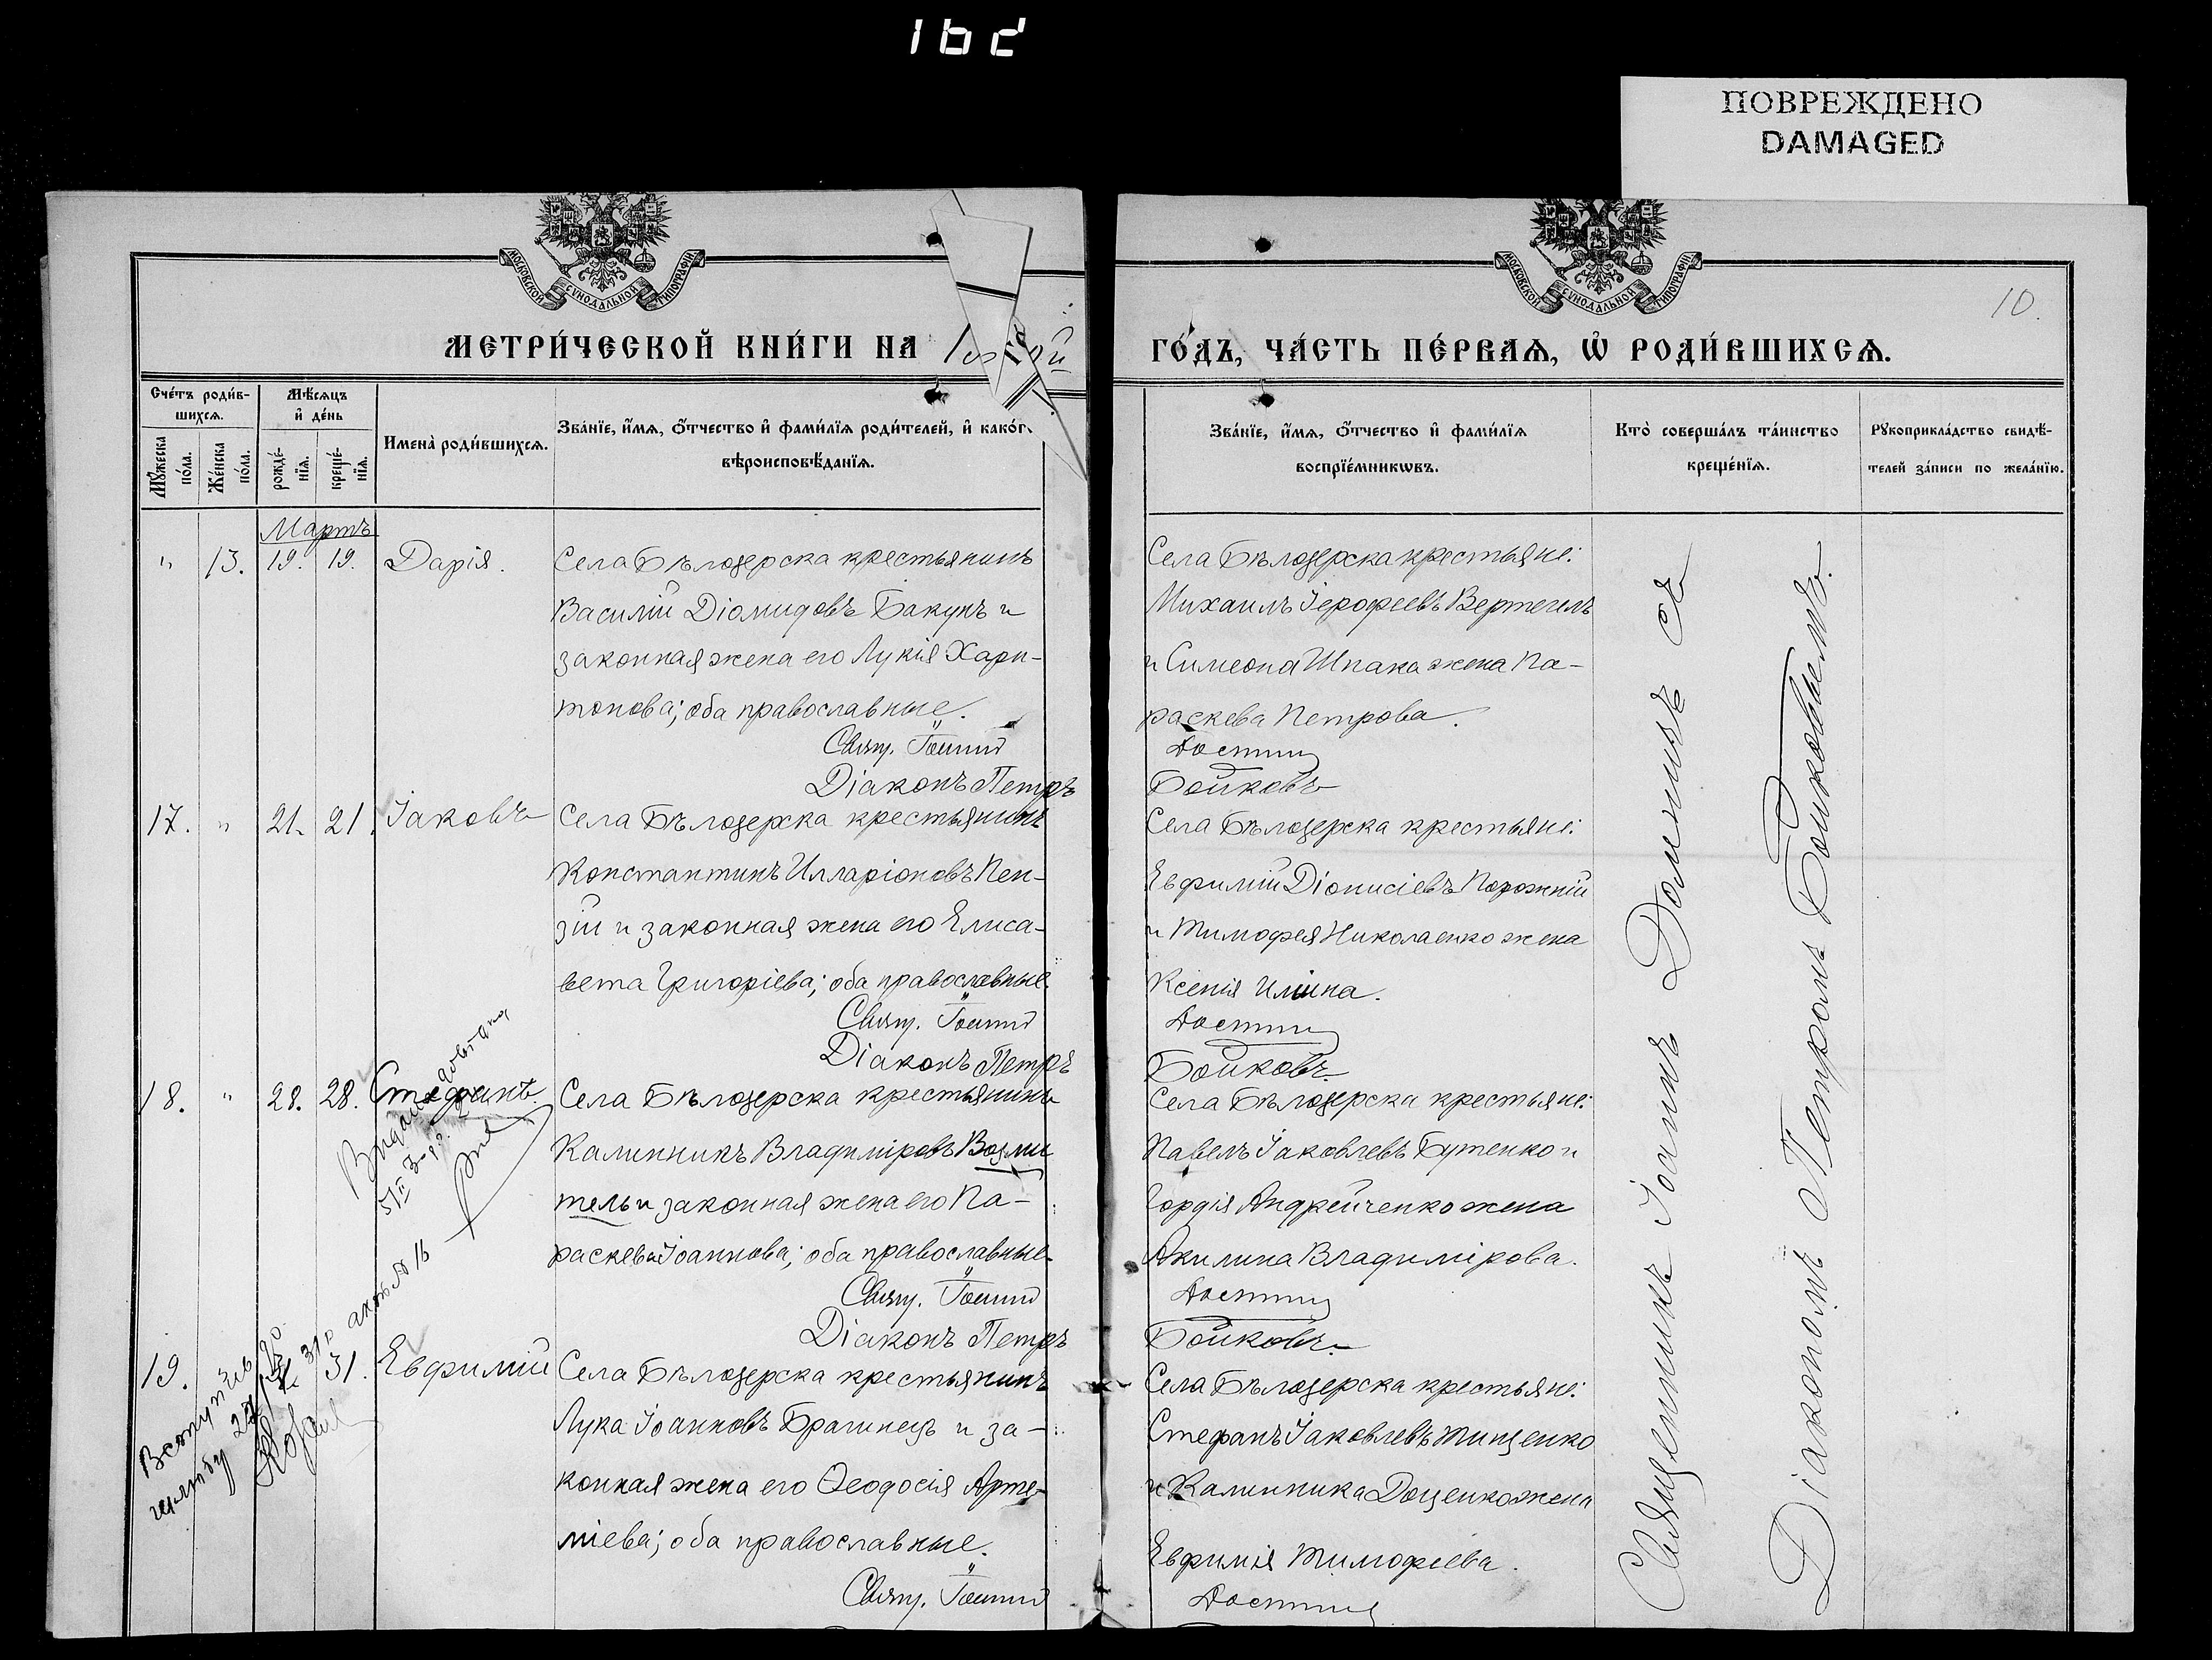 ПОВРЕЖДЕНО
DAMAGED
МОСКОВСКОЙ СѴНОДАЛЬНОЙ ТИПОГРАФІИ
МОСКОВСКОЙ СѴНОДАЛЬНОЙ ТИПОГРАФІИ
10.
МЕТРИ́ЧЕСКОЙ КНИ́ГИ НА
ГО́ДЪ, ЧА́СТЬ ПЕ́РВАѦ, Ѡ РОДИ́ВШИХСѦ.
Сче́тъ роди́в-
шихсѧ.
Мꙋ́жеска
по́ла.
Же́нска
по́ла.
Мѣ́сѧцъ
и҆ де́нь
рожде́-
нїѧ.
креще́-
нїѧ.
Имена̀ роди́вшихсѧ.
Зва́нїе, и҆́мѧ, о҆́тчество и҆ фами́лїѧ роди́телей, и҆ како́г
вѣроисповѣ́данїѧ.
Зва́нїе, и҆́мѧ, о҆́тчество и҆ фами́лїѧ
воспрїе́мникѡвъ.
Кто̀ соверша́лъ та́инство
креще́нїѧ.
Рꙋкоприкла́дство свидѣ́-
телей за́писи по жела́нїю.
Мартъ
" 13. 19. 19. Дарія.
Села Бѣлозерска крестьянинъ
Василій Діомидовъ Бакунъ и
законная жена его Лукія Хари-
тонова; оба православные.
Свящ.
Діаконъ Петръ
Села Бѣлозерска крестьяне:
Михаилъ Іерофеевъ Вертегелъ
и Симеона Шпака жена Па-
раскева Петрова.
Бойковъ
17. " 21. 21. Іаковъ
Села Бѣлозерска крестьянинъ
Константинъ Илларіоновъ Пен-
зій и законная жена его Елиса-
вета Григоріева; оба православные.
Свящ.
Діаконъ Петръ
Села Бѣлозерска крестьяне:
Евфимій Діонисіевъ Порожній
и Тимофея Николаенко жена
Ксенія Ильина.
Бойковъ
18. " 28. 28. Стефанъ.
Села Бѣлозерска крестьянинъ
Калинникъ Владиміровъ Возми
тель и законная жена его Па-
раскева Іоаннова; оба православные.
Свящ.
Діаконъ Петръ
Села Бѣлозерска крестьяне:
Павелъ Іаковлевъ Бутенко и
Гордія Андрейченко жена
Акилина Владимірова.
Бойковъ
19. 31. Евфимій
Села Бѣлозерска крестьянинъ
Лука Іоанновъ Брагинецъ и за-
конная жена его Ѳеодосія Арте-
міева; оба православные.
Свящ.
Села Бѣлозерска крестьяне:
Стефанъ Іаковлевъ Тищенко
и Калинника Доценко жена
Евфимія Тимофеева.
Священникъ Іоаннъ
Діакономъ Петромъ Бойковымъ.